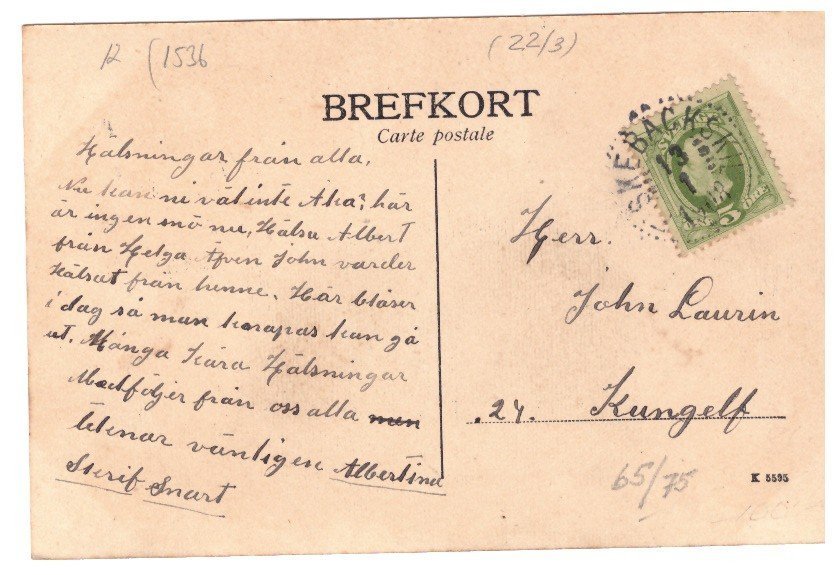 R (1536
(22/3)
BREFKORT
Carte postale
SKEBÄCKSKIL
13
1
5 ÖRE
Hälsningar från alla.
Nu kan ni väl inte Åka? här
är ingen snö nu, Hälsa Albert
från Helga Äfven John varder
Hälsat från henne. Här blåser
i dag så man knapas kan gå
ut. Många Kära Hälsningar
Medföljer från oss alla men
tecknar vänligen Albertina
Skrif Snart
Herr.
John Laurin
.24. Kungelf
65/75
K 5595